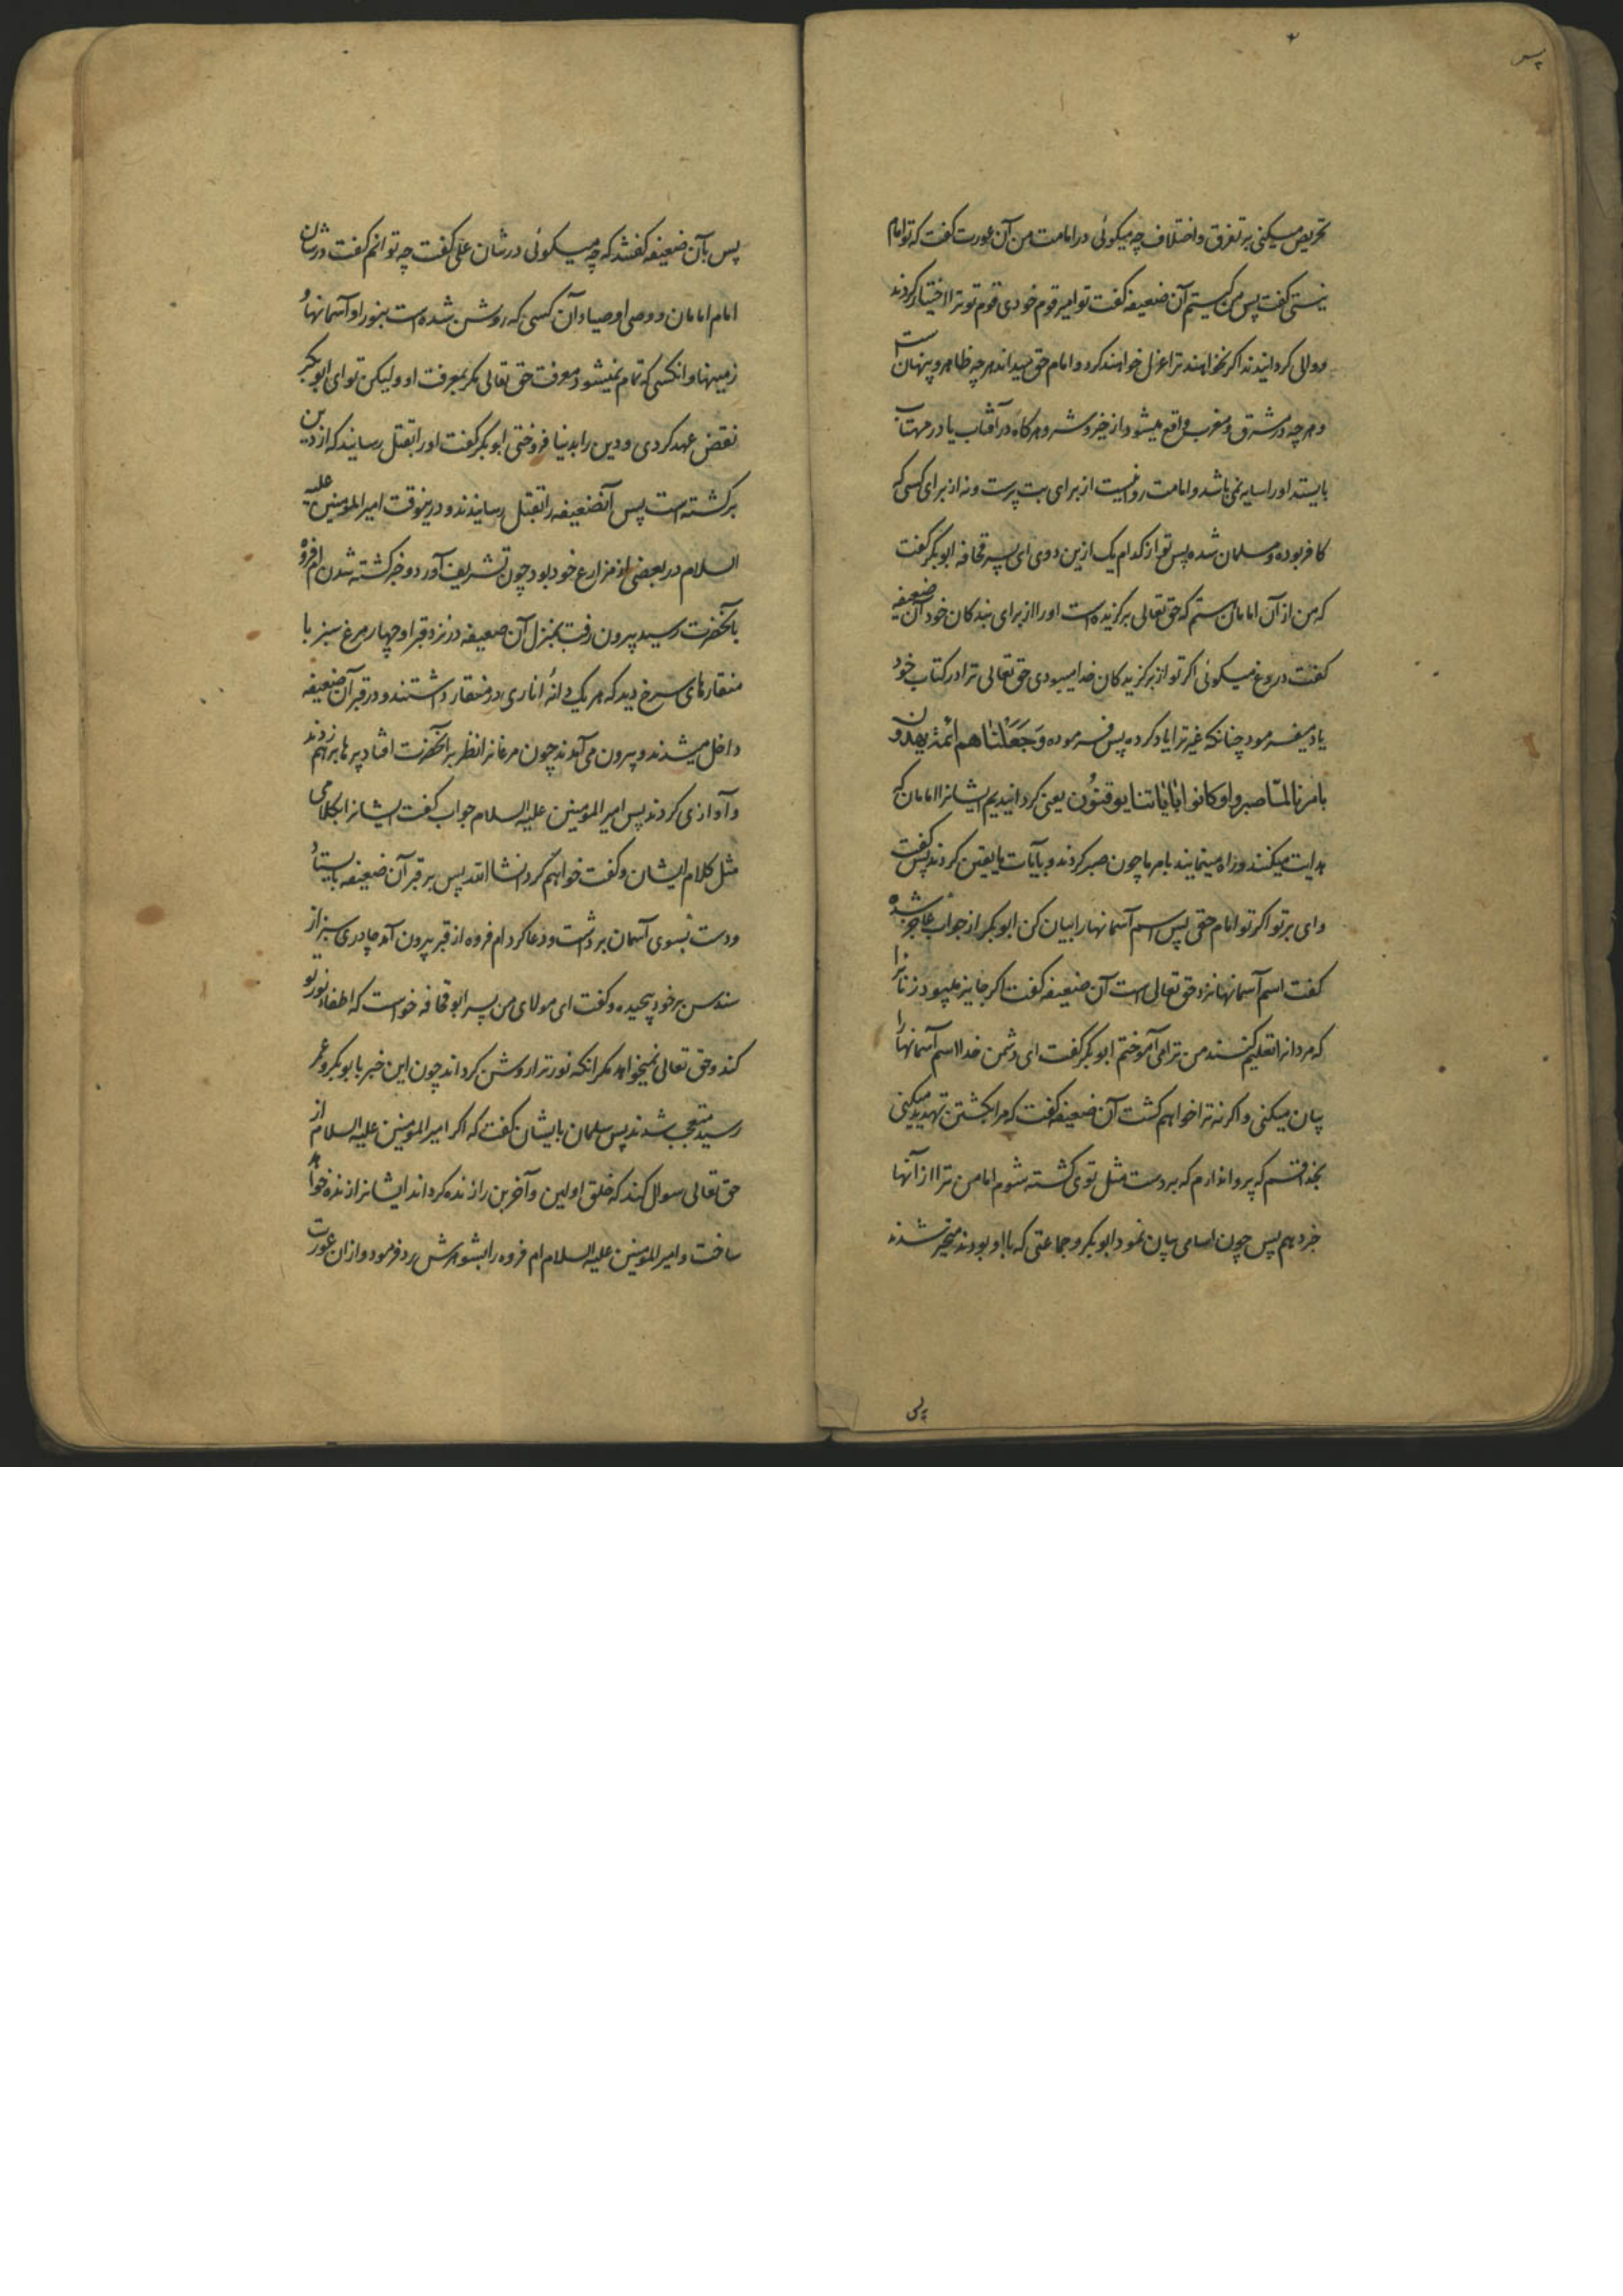 تحریص میکنی بر تفرق و اختلاف چه میکوئی در امامت من آن عورت کفت که تو امام
نیستی کفت پس من کیستم آن ضعیفه کفت تو امیر قوم خودی قوم تو ترا اختیار کردند
و والی کردانیدند اکر نخواهند ترا عزل خواهند کرد و امام حق میداند هر چه ظاهر و پنهان است
و هر چه در مشرق و مغرب واقع میشود از خیر و شر و هرکاه در آفتاب یا در مهتاب
بایستد او را سایه نمی باشد و امامت روا نیست از برای بت پرست و نه از برای کسی که
کافر بوده و مسلمان شده پس تو از کدام یک ازین دوی ای پسر قحافه ابوبکر کفت
که من از آن امامان هستم که حق تعالی برکزیده است او را از برای بندکان خود آن ضعیفه
کفت دروغ میکوئی اکر تو از برکزیدکان خدا میبودی حق تعالی ترا در کتاب خود
یاد میفرمود چنانکه غیر ترا یاد کرده پس فرموده وَجَعَلْنَاهم ائمة یهدون
بامرنا لمّا صبروا و کانوا بٰایٰاتنا یوقنوُن یعنی کردانیدیم ایشانرا امامان که
هدایت میکنند و راه مینمایند بامر ما چون صبر کردند و بآیات ما یقین کردند پس کفت
وای بر تو اکر تو امام حقی پس اسم آسمانها را بیان کن ابوبکر از جواب عاجز شده
کفت اسم آسمانها نزد حق تعالی است آن ضعیفه کفت اکر جایز میبود زنانرا
که مردانرا تعلیم کنند من ترا می آموختم ابوبکر کفت ای دشمن خدا اسم آسمانها را
بیان میکنی و اکر نه ترا خواهم کشت آن ضعیفه کفت که مرا بکشتن تهدید میکنی
بخدا قسم که پروا ندارم که بردست مثل توی کشته شوم اما من ترا از آنها
خبر دهم پس چون اسامی بیان نمود ابوبکر و جماعتی که با او بودند متحیر شدند
پس
پس بآن ضعیفه کفتند که چه میکوئی در شان علی کفت چه توانم کفت در شان
امام امامان و وصی اوصیا و آن کسی که روشن شده است بنور او آسمانها و
زمینها و انکسی که تمام نمیشود معرفت حق تعالی مکر بمعرفت او ولیکن تو ای ابوبکر
نقض عهد کردی و دین را بدنیا فروختی ابوبکر کفت او را بقتل رسانید که از دین
برکشته است پس آنضعیفه را بقتل رسانیدند و درینوقت امیر المومنین علیه
السلام در بعضی از مزارع خود بود چون تشریف آورد و خبر کشته شدن ام فروه
بآنحضرت رسید بیرون رفت بمنزل آن ضعیفه در نزد قبر او چهار مرغ سبز با
منقارهای سرخ دید که هر یک دانهٔ اناری در منقار داشتند و در قبر آن ضعیفه
داخل میشدند و بیرون می آمدند چون مرغانرا نظر بر آنحضرت افتاد پرها بر هم زدند
و آوازی کردند پس امیر المومنین علیه السلام جواب کفت ایشانرا بکلامی
مثل کلام ایشان و کفت خواهم کرد انشا الله پس بر قبر آن ضعیفه بایستاد
و دست بسوی آسمان برداشت و دعا کرد ام فروه از قبر بیرون آمد چادری سبز از
سندس بر خود پیچیده و کفت ای مولای من پسر ابو قحافه خواست که اطفاء نور تو
کند و حق تعالی نمیخواهد مکر انکه نور ترا روشن کرداند چون این خبر بابوبکر و عمر
رسید متعجب شدند پس سلمان بایشان کفت که اکر امیر المومنین علیه السلام از
حق تعالی سوال کند که خلق اولین و آخرین را زنده کرداند ایشانرا زنده خواهد
ساخت و امیر المومنین علیه السلام ام فروه را بشوهرش رد فرمود و ازان عورت